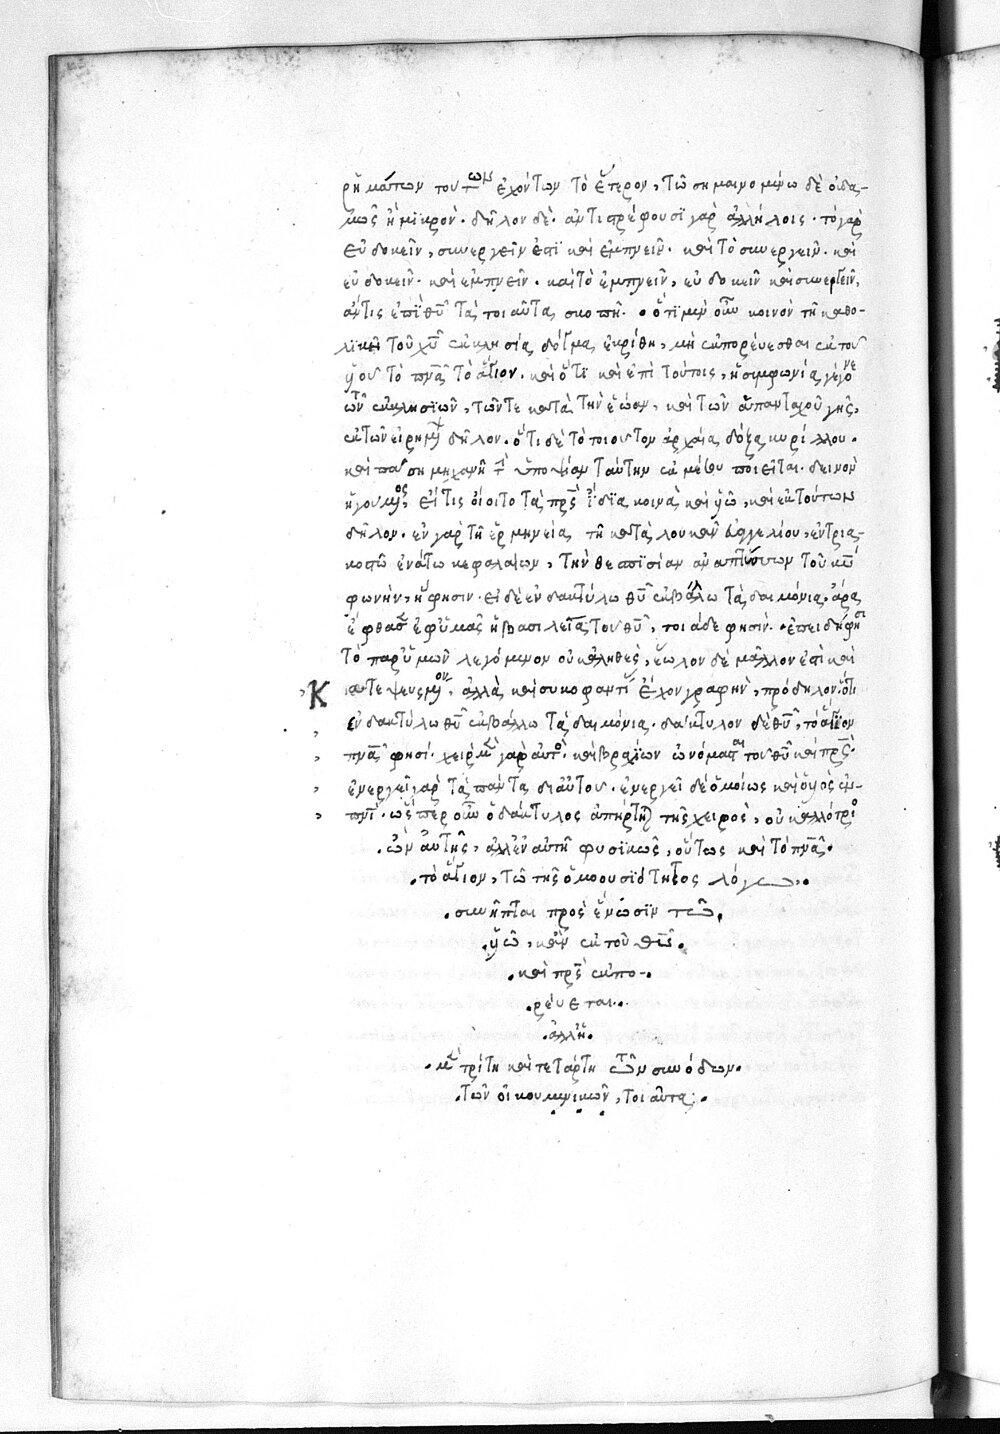 ρημάτων τούτων ἐχόντων τὸ ἕτερον, τῶ σημαινομένω δὲ οὐδα-
μῶς ἢ μικρὸν. δῆλον δὲ. ἀντιστρέφουσι γὰρ ἀλλήλοις. τὸ γὰρ
εὐδοκεῖν, συνεργεῖν ἐστὶ καὶ ἐμπνεῖν. καὶ τὸ συνεργεῖν. καὶ
εὐδοκεῖν. καὶ ἐμπνεῖν. καὶ τὸ ἐμπνεῖν, εὐδοκεῖν καὶ συνεργεῖν,
ἄν τις ἐπὶ θῦ τὰ τοιαῦτα σκοπῆ. ὅτι μὲν οὖν κοινὸν τῆ καθο-
λικῆ τοῦ χῦ ἐκκλησία δόγμα ἐκρίθη, μὴ ἐκπορεύεσθαι ἐκ τοῦ
ὑοῦ τὸ πνα τὸ ἅγιον. καὶ ὅτι καὶ ἐπὶ τούτοις, ἡ συμφωνία γέγονε
τῶν ἐκκλησιῶν, τῶν τε κατὰ τὴν ἑώαν, καὶ τῶν ἁπανταχοῦ γῆς,
ἐκ τῶν εἰρημένων δῆλον. ὅτι δὲ τὸ ποιοῦτον ἀρχαία δόξα κυρίλλου.
καὶ πάση μηχανῆ τὴν ὑποψίαν ταύτην ἐκ μέσου ποιεῖται. δεινὸν
ἡγούμενος, εἴ τις οἴοιτο τὰ πρς ἴδια κοινὰ καὶ ὑῶ, καὶ ἐκ τούτων
δῆλον. ἐν γὰρ τῆ ἑρμηνεία τῆ κατὰ λουκᾶν εὐαγγελίου, ἐν τρια-
κοστῶ ἐνάτω κεφαλαίω, τὴν θεσπισίαν ἀναπτύσσων τοῦ κυ
φωνὴν, ἥ φησιν. εἰ δὲ ἐν δακτύλω θῦ ἐκβάλλω τὰ δαιμόνια, ἄρα
ἔφθασεν ἐφ' ὑμᾶς ἡ βασιλεία τοῦ θῦ, τοιάδε φησίν. ἐπειδή φησι
τὸ παρ' ὑμῶν λεγόμενον οὐκ ἀληθές, ἕωλον δὲ μᾶλλον ἐστὶ καὶ
Κατεψευσμένον, ἀλλὰ καὶ συκοφαντίας ἔχον γραφὴν, πρόδηλον ὅτι
ἐν δακτύλω θῦ ἐκβάλλω τὰ δαιμόνια. δάκτυλον δὲ θῦ, τὸ ἅγιον
πνα φησί. χεὶρ μὲν γὰρ αὐτὸς. καὶ βραχίων ὠνόμασται τοῦ θῦ καὶ πρς.
ἐνεργεῖ γὰρ τὰ πάντα δι' αὐτοῦ. ἐνεργεῖ δὲ ὁμοίως καὶ ὁ ὑὸς ἐν
πνι. ὥσπερ οὖν ὁ δάκτυλος ἀπήρτηται τῆς χειρὸς, οὐκ ἀλλότριος
ὢν αὐτῆς, ἀλλ' ἐν αὐτῆ φυσικῶς, οὕτως καὶ τὸ πνα.
τὸ ἅγιον, τῶ τῆς ὁμοουσιότητος λόγω.
συνῆπται πρὸς ἕνωσιν τῶ
ὑῶ, κἂν ἐκ τοῦ θῦ
καὶ πρς ἐκπο-
ρεύεται.
ἀλλ' ἡ
μὲν τρίτη καὶ τετάρτη τῶν συνόδων
τῶν οἰκουμενικῶν, τοιαῦτα: